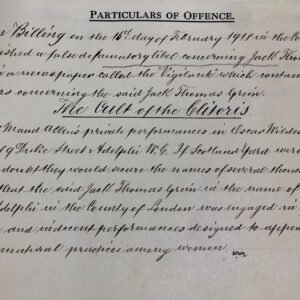 PARTICULARS OF OFFENCE.
Billing on the 16th day of February 1918 in the Co
ished a false defamatory libel concerning Jack Tho
a newspaper called the Vigilante which contain
rs concerning the said Jack Thomas Grein.
The Cult of the Clitoris.
Maud Allan's private performances in Oscar Wilde
9 Duke Street Adelphi W.C. If Scotland Yard were
doubt they would secure the names of several thousa
that the said Jack Thomas Grein in the name of
delphi in the County of London was engaged in
and indecent performances designed to appea
natural practices among women.